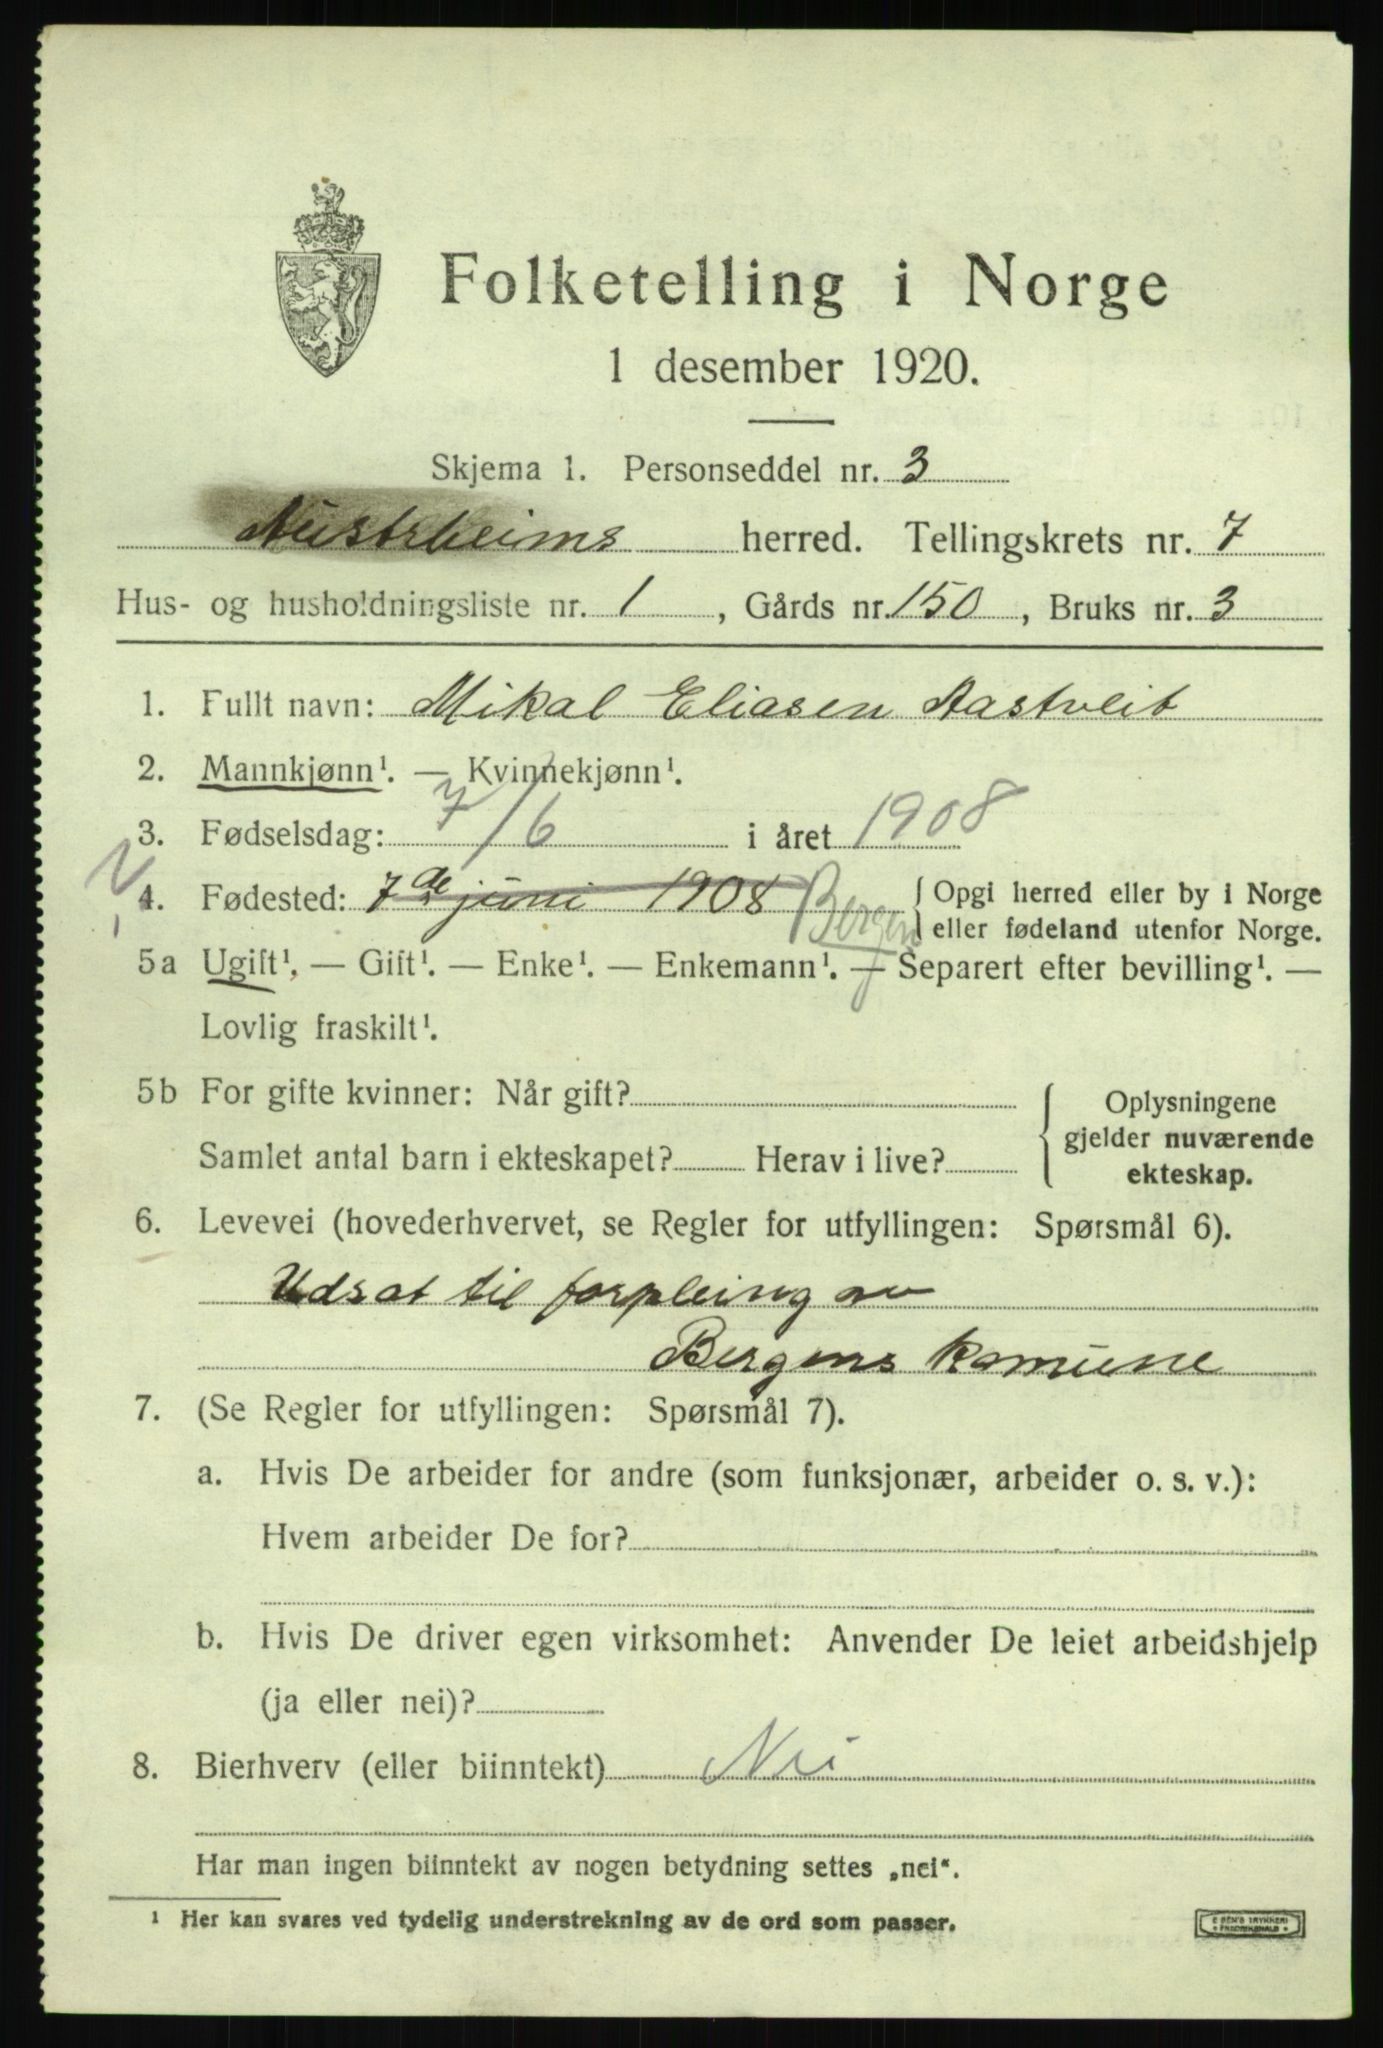 Folketelling i Norge
1 desember 1920.
Skjema 1. Personseddel nr. 3
Austrheims herred. Tellingskrets nr. 7
Hus- og husholdningsliste nr. 1, Gårds nr. 150, Bruks nr. 3
1. Fullt navn: Mikal Eliasen Aastveit
2. Mannkjønn¹. — Kvinnekjønn¹.
3. Fødselsdag: 7/6 i året 1908
4. Fødested: 7de juni 1908 Bergen { Opgi herred eller by i Norge
eller fødeland utenfor Norge.
5a Ugift¹. — Gift¹. — Enke¹. — Enkemann¹. — Separert efter bevilling¹. —
Lovlig fraskilt¹.
5b For gifte kvinner: Når gift?
Samlet antal barn i ekteskapet? Herav i live?
Oplysningene
gjelder nuværende
ekteskap.
6. Levevei (hovederhvervet, se Regler for utfyllingen: Spørsmål 6).
Udsat til forpleing av
Bergens komune
7. (Se Regler for utfyllingen: Spørsmål 7).
a. Hvis De arbeider for andre (som funksjonær, arbeider o. s. v.):
Hvem arbeider De for?
b. Hvis De driver egen virksomhet: Anvender De leiet arbeidshjelp
(ja eller nei)?
8. Bierhverv (eller biinntekt) Nei
Har man ingen biinntekt av nogen betydning settes „nei“.
¹ Her kan svares ved tydelig understrekning av de ord som passer.